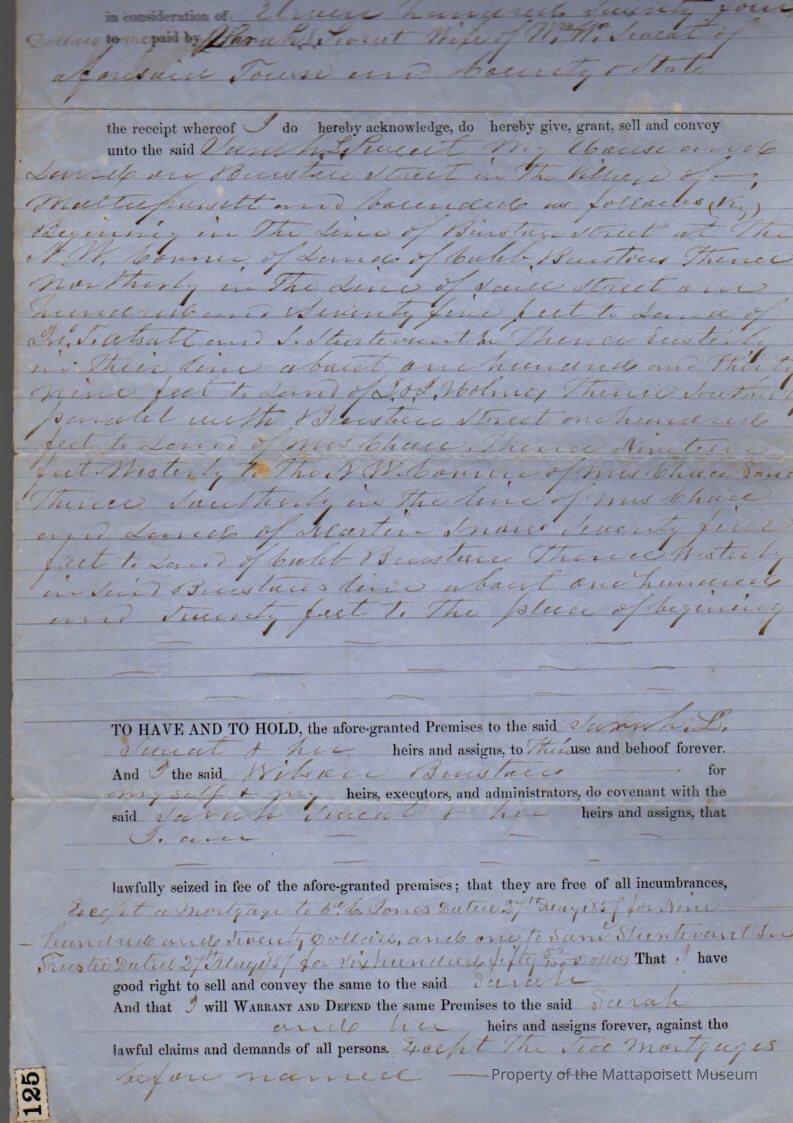 in consideration of Eleven hundred Seventy four
Dollars to me paid by Sarah L. Sweat Wife of Wm. W. Sweat of
aforesaid Town and County & State
the receipt whereof I do hereby acknowledge, do hereby give, grant, sell and convey
unto the said Sarah L. Sweat My House and
Land on Barstow Street in the Village of
Mattapoisett and bounded as follows (viz)
Beginning in The Line of Barstow Street at The
N.W. Corner of Land of Caleb Barstow Thence
Northerly in The Line of said Street one
hundred and Seventy five feet to Land of
and S. Sturtevant Jr Thence Easterly
in their line about one hundred and thirty
nine feet to Land of Holmes Thence Southerly
paralel with Barstow Street one hundred
feet to Land of Mrs Chace, Thence Nineteen
feet Westerly to the N.W. Corner of Mrs Chace Land
Thence Southerly in The line of Mrs Chace
and Land of Martin Snow Seventy five
feet to Land of Caleb Barstow Thence Westerly
in said Barstows line about one hundred
and twenty feet to The place of begining
TO HAVE AND TO HOLD, the afore-granted Premises to the said Sarah L.
Sweat & her heirs and assigns, to Their use and behoof forever.
And I the said Wilson Barstow for
myself & my heirs, executors, and administrators, do covenant with the
said Sarah Sweat & her heirs and assigns, that
I am
lawfully seized in fee of the afore-granted premises; that they are free of all incumbrances,
Except a Mortgage to Jones Dated 27th May 1857 for Nine
hundred and Seventy Dollars, and one to Saml Sturtevant Jr
Trustee Dated 27th May 1857 for Six hundred fifty Dollars That I have
good right to sell and convey the same to the said Sarah
And that I will WARRANT AND DEFEND the same Premises to the said Sarah
and her heirs and assigns forever, against the
lawful claims and demands of all persons. Except The Two Mortgages
before named
Property of the Mattapoisett Museum
125